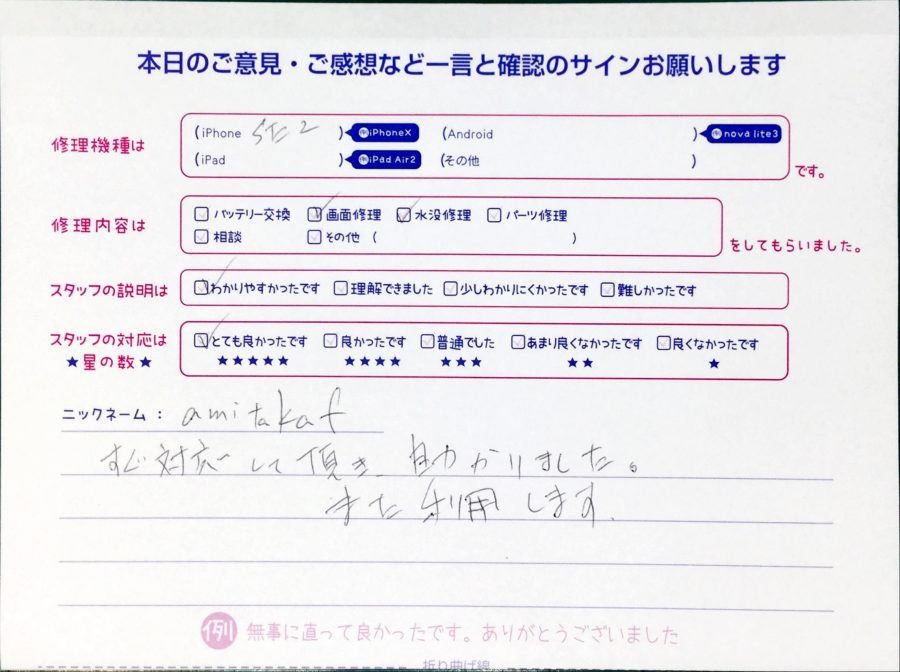 本日のご意見・ご感想など一言と確認のサインお願いします
修理機種は
(iPhone SE 2 ) 例iPhoneX (Android ) 例nova lite3
(iPad ) 例iPad Air2 (その他 )
です。
修理内容は
バッテリー交換 画面修理 水没修理 パーツ修理
相談 その他 ( )
をしてもらいました。
スタッフの説明は
わかりやすかったです 理解できました 少しわかりにくかったです 難しかったです
スタッフの対応は
★星の数★
とても良かったです 良かったです 普通でした あまり良くなかったです 良くなかったです
★★★★★ ★★★★ ★★★ ★★ ★
ニックネーム： amitakaf
すぐ対応して頂き、助かりました。
また利用します。
例 無事に直って良かったです。ありがとうございました
折り曲げ線